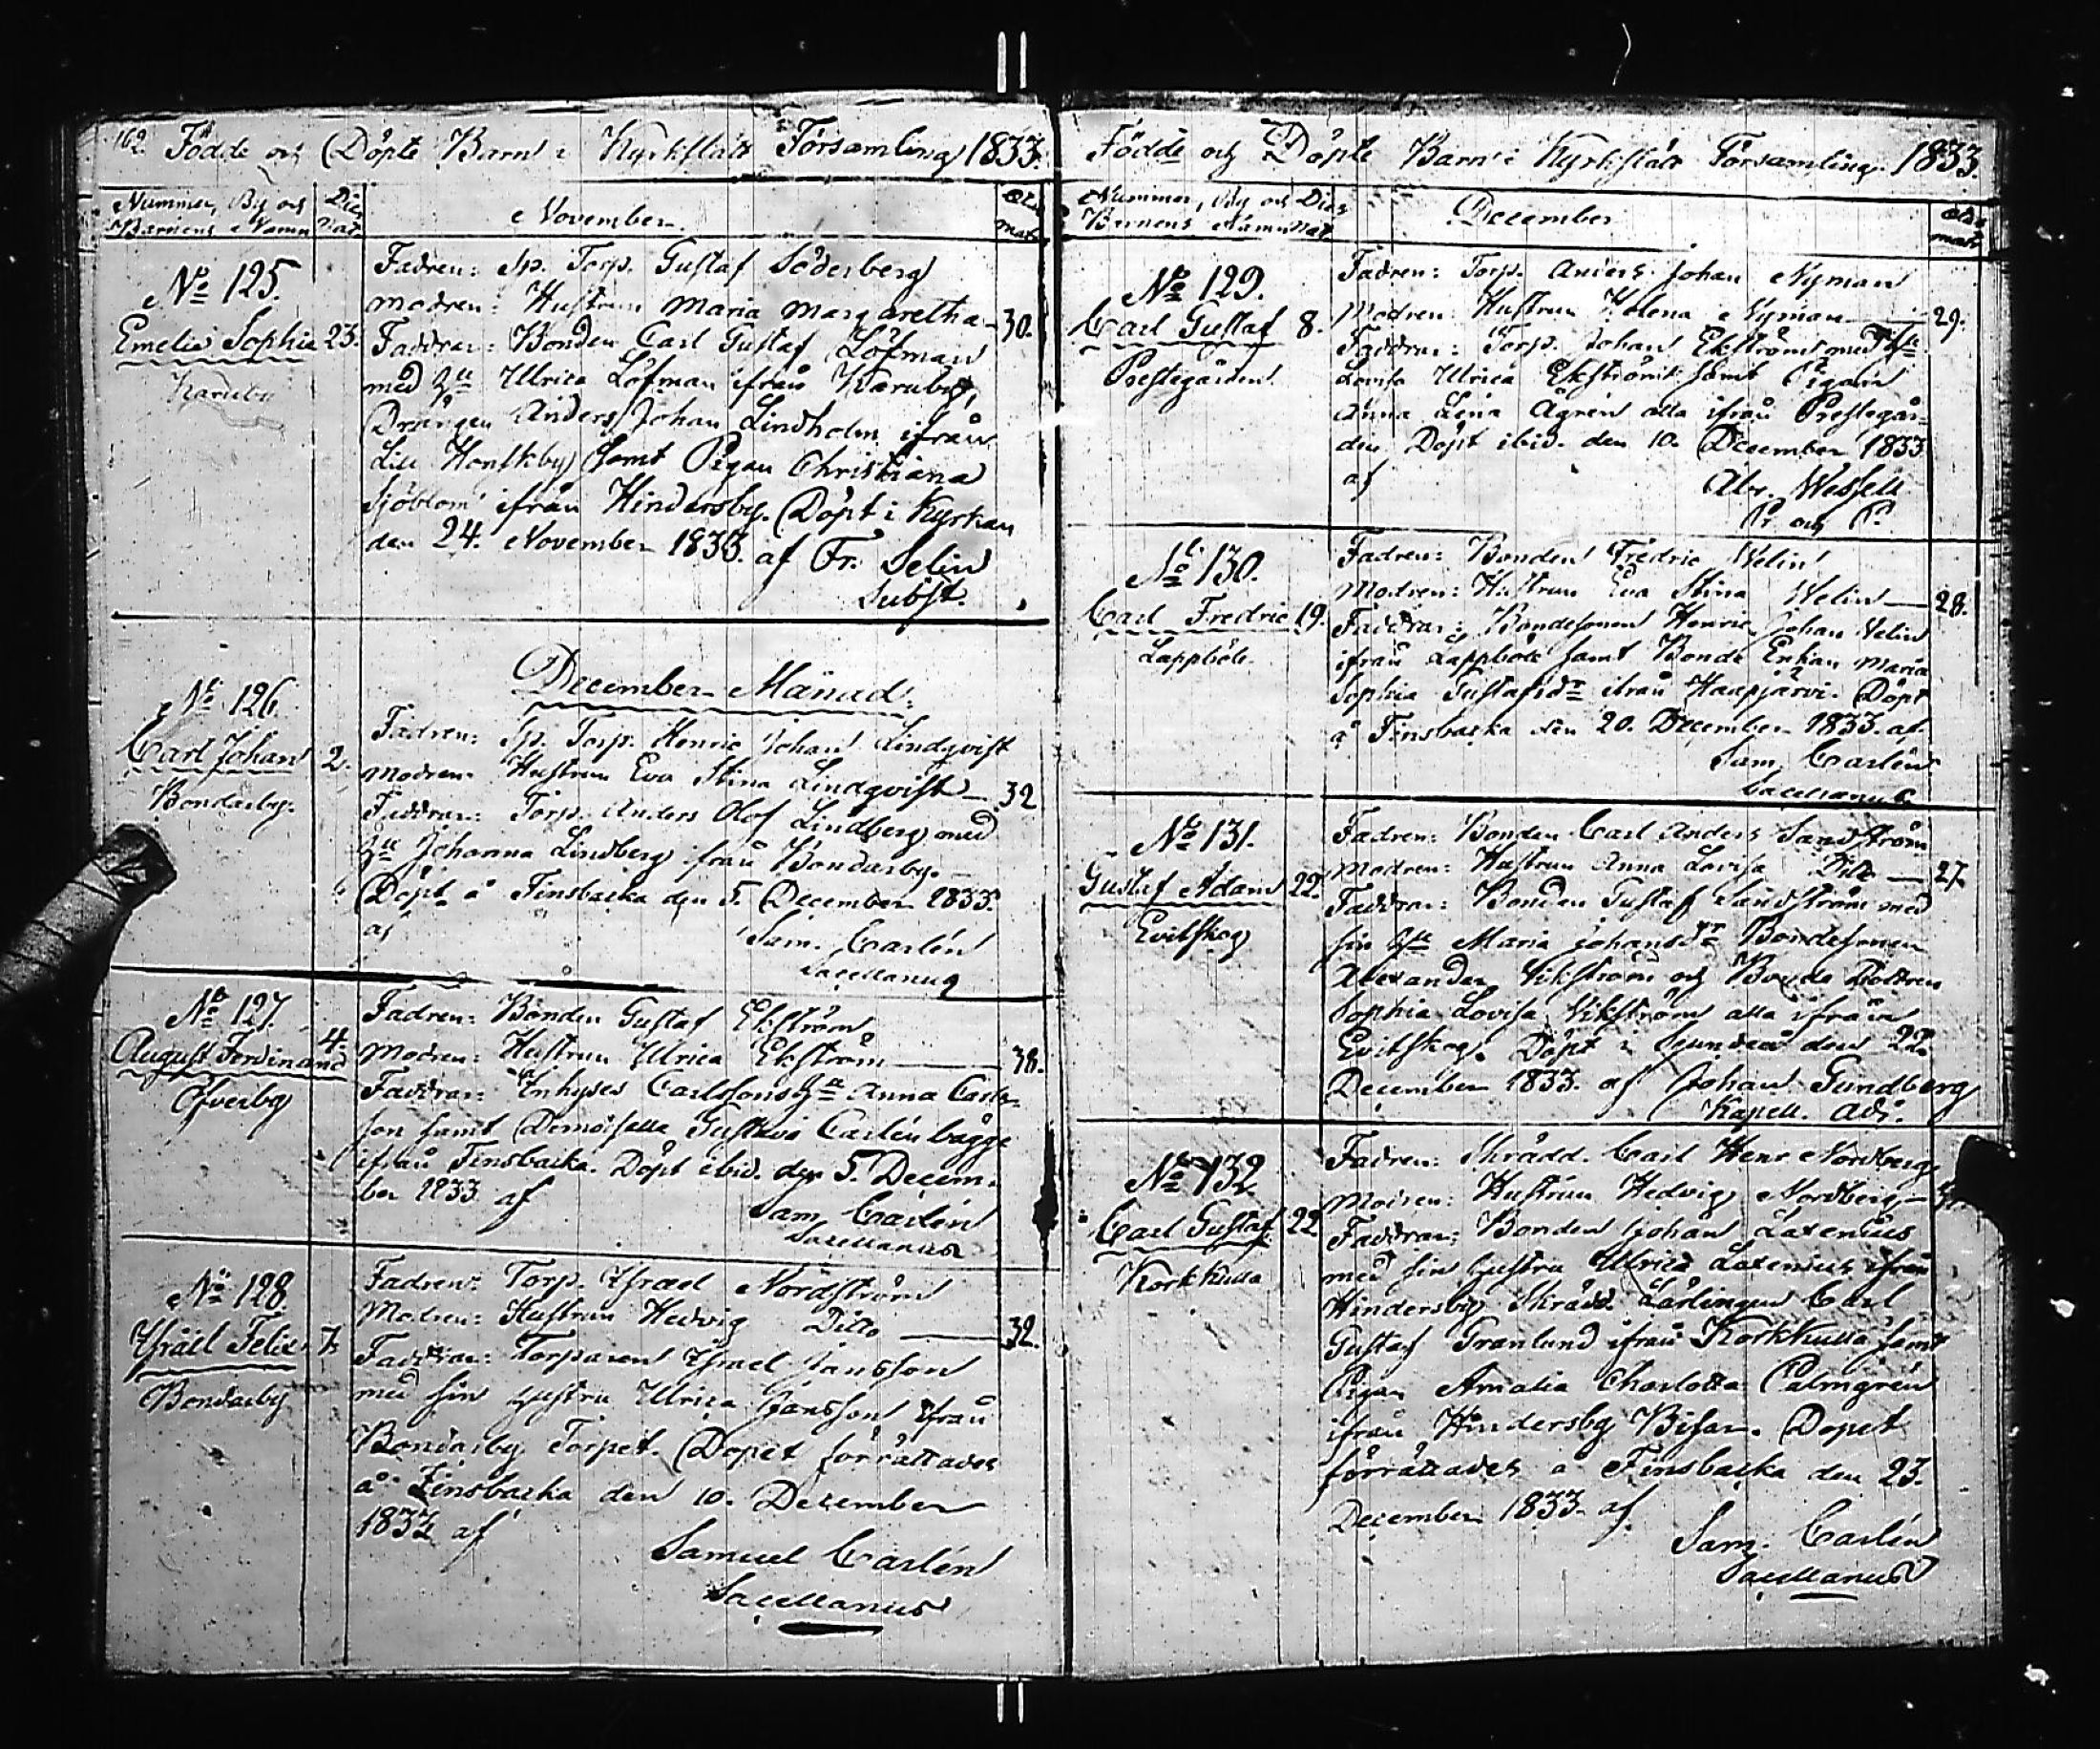 162. Födde och Döpte Barn i Kyrkslätt Församling 1833.
Nummer, By och Dies
Barnens Namn Nat.
November.
Æta
mat.
No 125.
Emelie Sophia 23.
Karuby
Fadren: Sp. Torp. Gustaf Söderberg
Modren: Hustrun Maria Margaretha - 30.
Faddrar: Bonden Carl Gustaf Löfman
med Hu Ulrica Löfman ifrån Karuby,
Drängen Anders Johan Lindholm ifrån
Lill Honskby samt Pigan Christiana
Sjöblom ifrån Hindersby. Döpt i Kyrkan
den 24. November 1833. af Fr. Selin
Subst.
December Månad.
No 126.
Carl Johan 2.
Bondarby.
Fadren: Sp. Torp. Henric Johan Lindqvist
Modren: Hustrun Eva Stina Lindqvist - 32
Faddrar: Torp. Anders Olof Lindberg med
Hu Johanna Lindberg ifrån Bondarby.
Döpt å Finsbacka den 5. December 1833.
af Sam. Carlén
Sacellanus
No 127.
4.
August Ferdinand
Öfverby
Fadren: Bonden Gustaf Ekström
Modren: Hustrun Ulrica Ekström - 38.
Faddrar: Inhyses Carlssons Hu Anna Carls-
son samt Demoiselle Gustava Carlén bägge
ifrån Finsbacka. Döpt ibid. den 5. Decem-
ber 1833 af
Sam Carlén
Sacellanus
No 128.
Israel Felix 7.
Bondarby
Fadren: Torp. Israel Nordström
Modren: Hustrun Hedvig Ditto - 32.
Faddrar: Torparen Israel Jansson
med sin Hustru Ulrica Jansson ifrån
Bondarby Torpet. Dopet förrättades
å Finsbacka den 10. December
1833 af
Samuel Carlén
Sacellanus
Födde och Döpte Barn i Kyrkslätt Församling. 1833.
Nummer, By och Dies
Barnens Namn Nat.
December
Æta
mat.
No 129.
Carl Gustaf 8.
Prestegården.
Fadren: Torp. Anders Johan Nyman
Modren: Hustrun Helena Nyman - 29.
Faddrar: Torp. Johan Ekström med Hu
Lovisa Ulrica Ekström samt Pigan
Anna Lena Ågren alla ifrån Prestegår-
den Döpt ibid. den 10. December 1833
af Abr. Wessell
Pr. och P.
No 130.
Carl Fredric 19.
Lappböle.
Fadren: Bonden Fredric Welin
Modren: Hustrun Eva Stina Welin - 28.
Faddrar: Bondesonen Henric Johan Welin
ifrån Lappböle samt Bonde Enkan Maria
Sophia Gustafsdr ifrån Haapjärvi. Döpt
å Finsbacka den 20. December 1833. af
Sam. Carlén
Sacellanus.
No 131.
Gustaf Adam 22.
Evitskog
Fadren: Bonden Carl Anders Sandström
Modren: Hustrun Anna Lovisa Dito - 27.
Faddrar: Bonden Gustaf Sandström med
sin Hu Maria Johansdr Bondesonen
Alexander Vikström och Bonde Dottren
Sophia Lovisa Vikström alla ifrån
Evitskog. Döpt i Sjundeå den
December 1833. af Johan Gundberg
Kapell. Adj.
No 132
Carl Gustaf 22
Korkkulla
Fadren: Skrädd. Carl Henr Nordberg
Modren: Hustrun Hedvig Nordberg -
Faddrar: Bonden Johan Laxenius
med sin Hustru Ulrica Laxenius ifrån
Hindersby Skrädd. Lärlingen Carl
Gustaf Granlund ifrån Korkkulla samt
Pigan Amalia Charlotta Palmgren
ifrån Hindersby Bisar. Dopet
förrättades å Finsbacka den 23.
December 1833. af
Sam. Carlén
Sacellanus